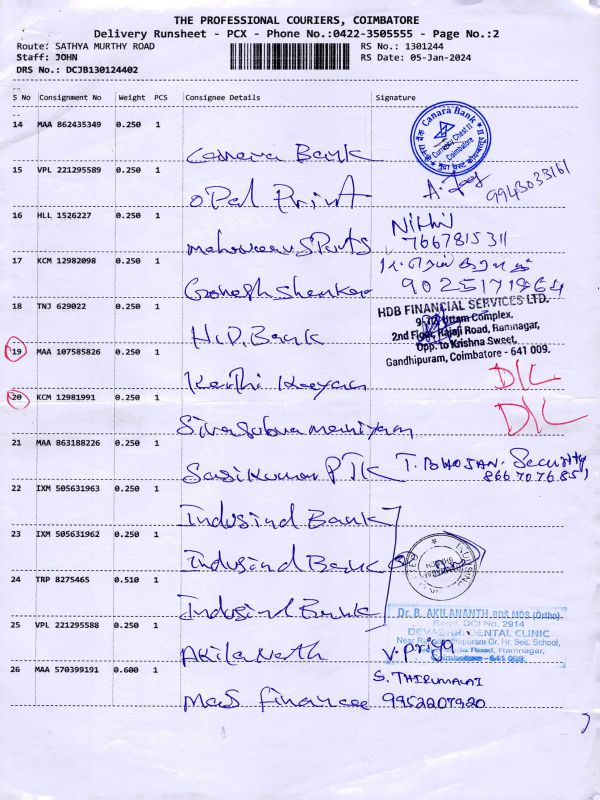 THE PROFESSIONAL COURIERS, COIMBATORE
Delivery Runsheet - PCX - Phone No.:0422-3505555 - Page No.:2
Route: SATHYA MURTHY ROAD RS No.: 1301244
Staff: JOHN RS Date: 05-Jan-2024
DRS No.: DCJB130124402
S No Consignment No Weight PCS Consignee Details Signature
14 MAA 862435349 0.250 1
Canara Bank
Canara Bank
Currency Chest II
Coimbatore
15 VPL 221295589 0.250 1
Opel Print 9943033161
16 HLL 1526227 0.250 1 Nithin
Sports 7667815311
17 KCM 12982098 0.250 1
Gonesh Shenker 9025171864
18 TNJ 629022 0.250 1
HDB FINANCIAL SERVICES LTD.
Uttam Complex,
2nd Floor, Rajaji Road, Ramnagar,
Opp. to Krishna Sweet,
Gandhipuram, Coimbatore - 641 009.
H.D. Bank
19 MAA 107585826 0.250 1
Kerthi Keeyan D/L
20 KCM 12981991 0.250 1
D/L
21 MAA 863188226 0.250 1
Sasikumar PTK T. BHOSAN. Security
8667076851
22 IXM 505631963 0.250 1
Indusind Bank
23 IXM 505631962 0.250 1
Indusind Bank
24 TRP 8275465 0.510 1
Indusind Bank
25 VPL 221295588 0.250 1
Dr. B. AKILANANTH, BDS, MDS (Ortho)
Regd. DCI No. 2914
DENTAL CLINIC
Gr. Hr. Sec. School,
Road, Ramnagar,
Coimbatore - 641 009.
Akila Nath V. Priya
26 MAA 570399191 0.600 1
S. THIRUMALAI
Mas Financee 9952207920